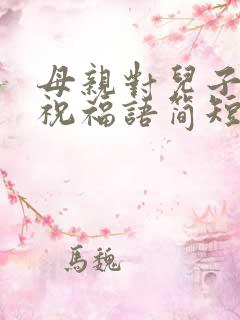 母親對兒子
祝福語简短
馬魏